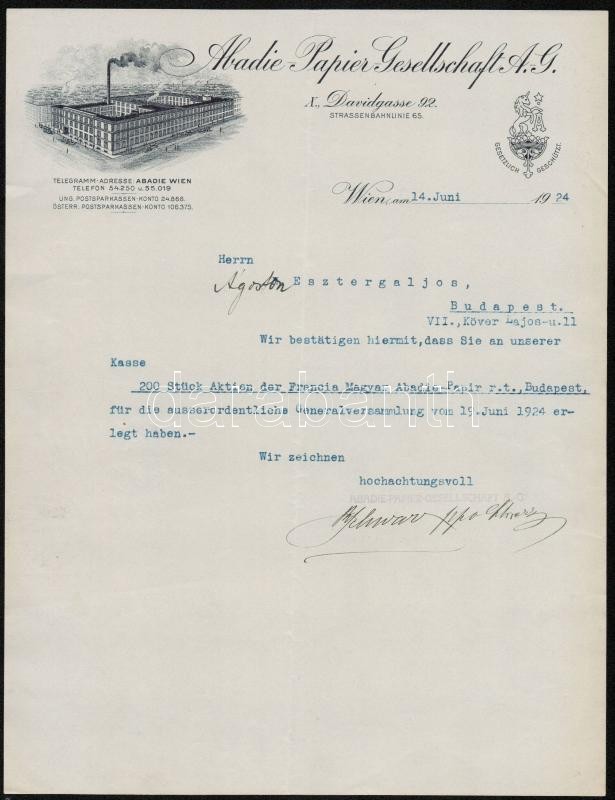 Abadie Papier Gesellschaft A.G.
X., Davidgasse 92.
STRASSENBAHNLINIE 65.
GESETZLICH GESCHÜTZT.
TELEGRAMM-ADRESSE: ABADIE WIEN
TELEFON 54.250 u. 55.019
UNG. POSTSPARKASSEN-KONTO 24.868.
ÖSTERR. POSTSPARKASSEN-KONTO 106.375.
Wien, am 14. Juni 1924
Herrn
Ágoston Esztergaljos,
Budapest.
VII., Köver Lajos-u.11
Wir bestätigen hiermit, dass Sie an unserer
Kasse
200 Stück Aktien der Francia Magyar Abadie Papir r.t., Budapest,
für die ausserordentliche Generalversammlung vom 19. Juni 1924 er-
legt haben.-
Wir zeichnen
hochachtungsvoll
ABADIE-PAPIER-GESELLSCHAFT A.G.
darabanth